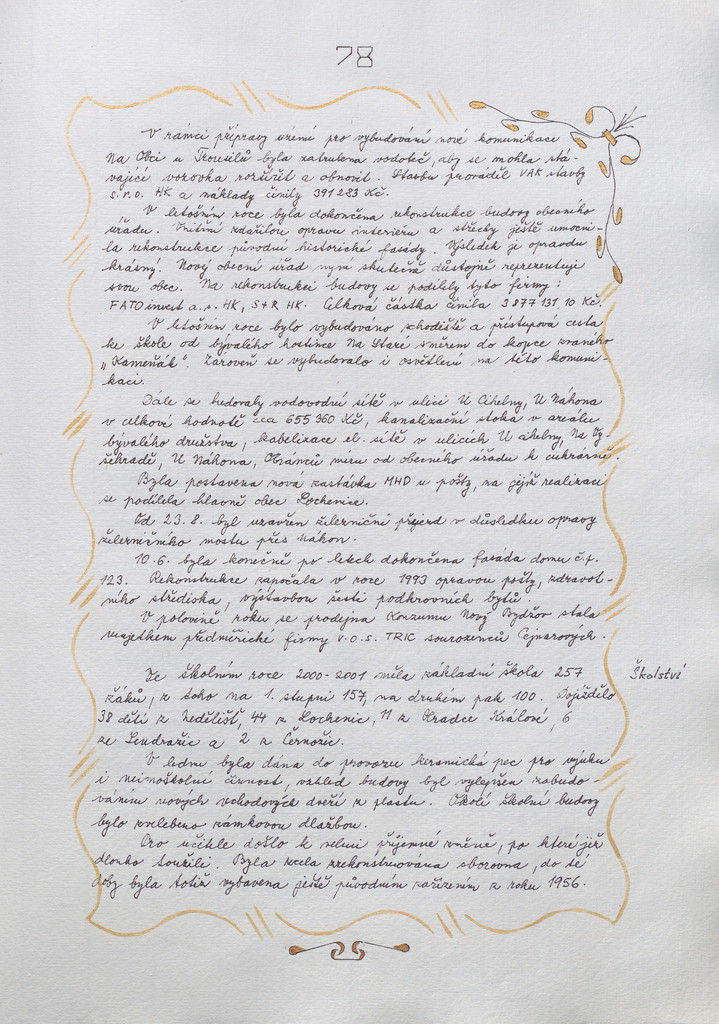 78
V rámci přípravy území pro vybudování nové komunikace
Na Obci u Trousilů byla zatrubena vodoteč, aby se mohla stá-
vající vozovka rozšířit a obnovit. Stavbu prováděl VAK stavby
s.r.o. HK a náklady činily 391 283 Kč.
V letošním roce byla dokončena rekonstrukce budovy obecního
úřadu. Vnitřní zdařilou opravu interieru a střechy ještě umocni-
la rekonstrukce původní historické fasády. Výsledek je opravdu
krásný. Nový obecní úřad nyní skutečně důstojně reprezentuje
svou obec. Na rekonstrukci budovy se podílely tyto firmy:
FATO invest a.s. HK, S+R HK. Celková částka činila 3 877 131,10 Kč.
V letošním roce bylo vybudováno schodiště a přístupová cesta
ke škole od bývalého hostince Na Staré směrem do kopce zvaného
„Kameňák". Zároveň se vybudovalo i osvětlení na této komuni-
kaci.
Dále se budovaly vodovodní sítě v ulici U Cihelny, U Náhona
v celkové hodnotě cca 655 360 Kč, kanalizační stoka v areálu
bývalého družstva, kabelizace el. sítě v ulicích U cihelny, Na Vy-
šehradě, U Náhona, Obránců míru od obecního úřadu k cukrárně.
Byla postavena nová zastávka MHD u pošty, na jejíž realizaci
se podílela hlavně obec Lochenice.
Od 23.8. byl uzavřen železniční přejezd v důsledku opravy
železničního mostu přes Náhon.
10.6. byla konečně po letech dokončena fasáda domu č.p.
123. Rekonstrukce započala v roce 1993 opravou pošty, zdravot-
ního střediska, výstavbou šesti podkrovních bytů.
V polovině roku se prodejna Konzumu Nový Bydžov stala
majetkem předměřické firmy v.o.s. TRIC sourozenců Cejnarových.
Ve školním roce 2000-2001 měla základní škola 257
Školství
žáků, z toho na 1. stupni 157, na druhém pak 100. Dojíždělo
38 dětí z Neděliště, 44 z Lochenic, 11 z Hradce Králové, 6
ze Sendražic a 2 z Černožic.
V lednu byla dána do provozu keramická pec pro výuku
i mimoškolní činnost, vzhled budovy byl vylepšen zabudo-
váním nových vchodových dveří z plastu. Okolí školní budovy
bylo zvelebeno zámkovou dlažbou.
Pro učitele došlo k velmi příjemné změně, po které již
dlouho toužili. Byla zcela zrekonstruována sborovna, do té
doby byla totiž vybavena ještě původním zařízením z roku 1956.